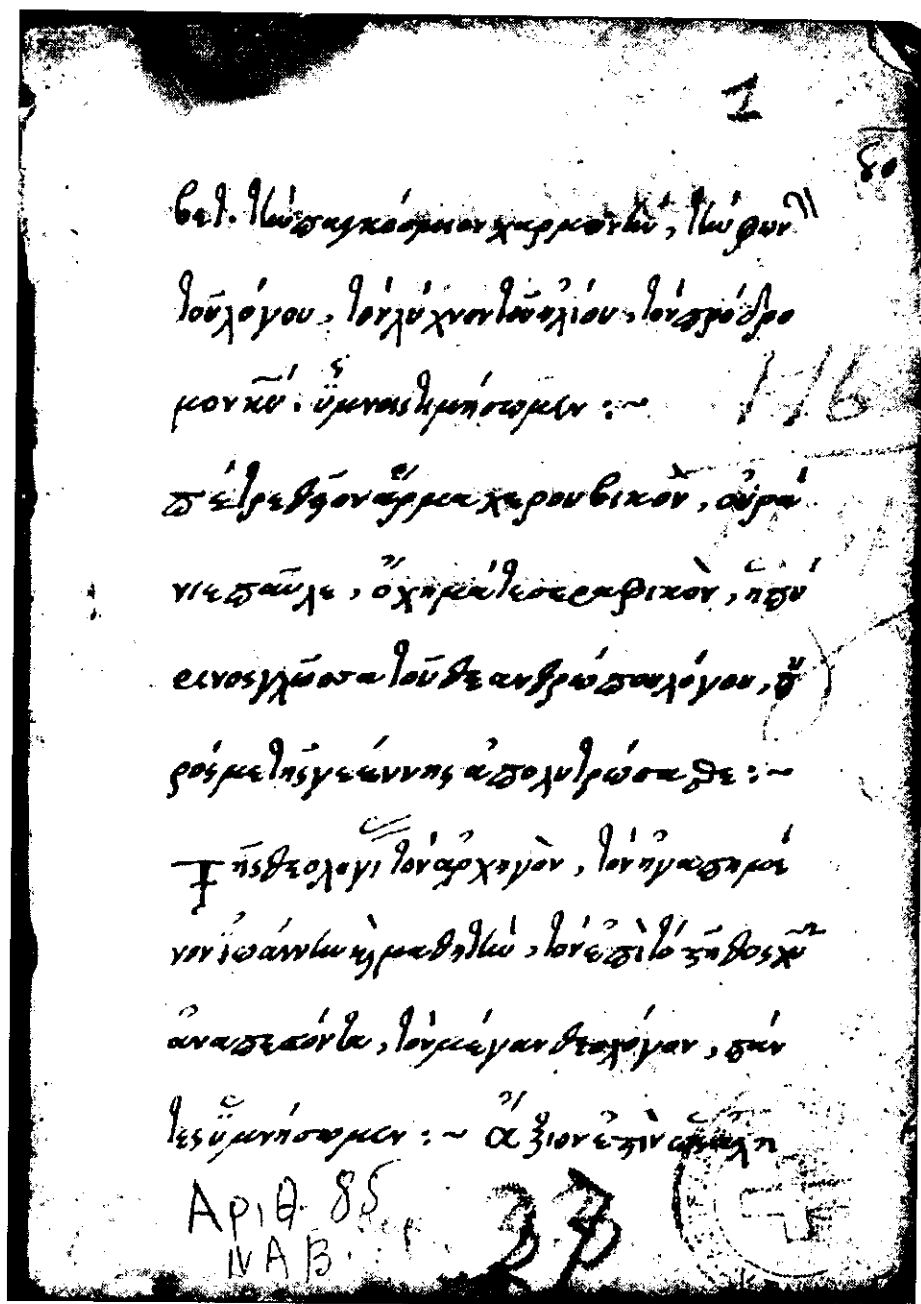 1
80
βει. τὴν παγκόσμιον χαρμονὴν, τὴν φων
τοῦ λόγου, τὸν λύχνον τοῦ ἡλίου, τὸν πρόδρο
μον κυ, ὕμνοις τιμήσωμεν :~
116
πέτρε θεῖον ἅρμα χερουβικὸν, οὐρά
νιε παῦλε, ὄχημά τε σεραφικὸν, ἡ πύ
ρινος γλῶσσα τοῦ θεανθρώπου λόγου, π
ρός με τῆς γεέννης ἀπολυτρώσασθε :~
Τῆς θεολογί τὸν ἀρχηγὸν, τὸν ἠγαπημέ
νον ἰωάννην καὶ μαθητὴν, τὸν ἐπὶ τὸ στῆθος χυ
ἀναπεσόντα, τὸν μέγαν θεολόγον, πάν
τες ὑμνήσωμεν :~ ἄξιον ἐστὶν
Αριθ. 85
ΝΑΒ.